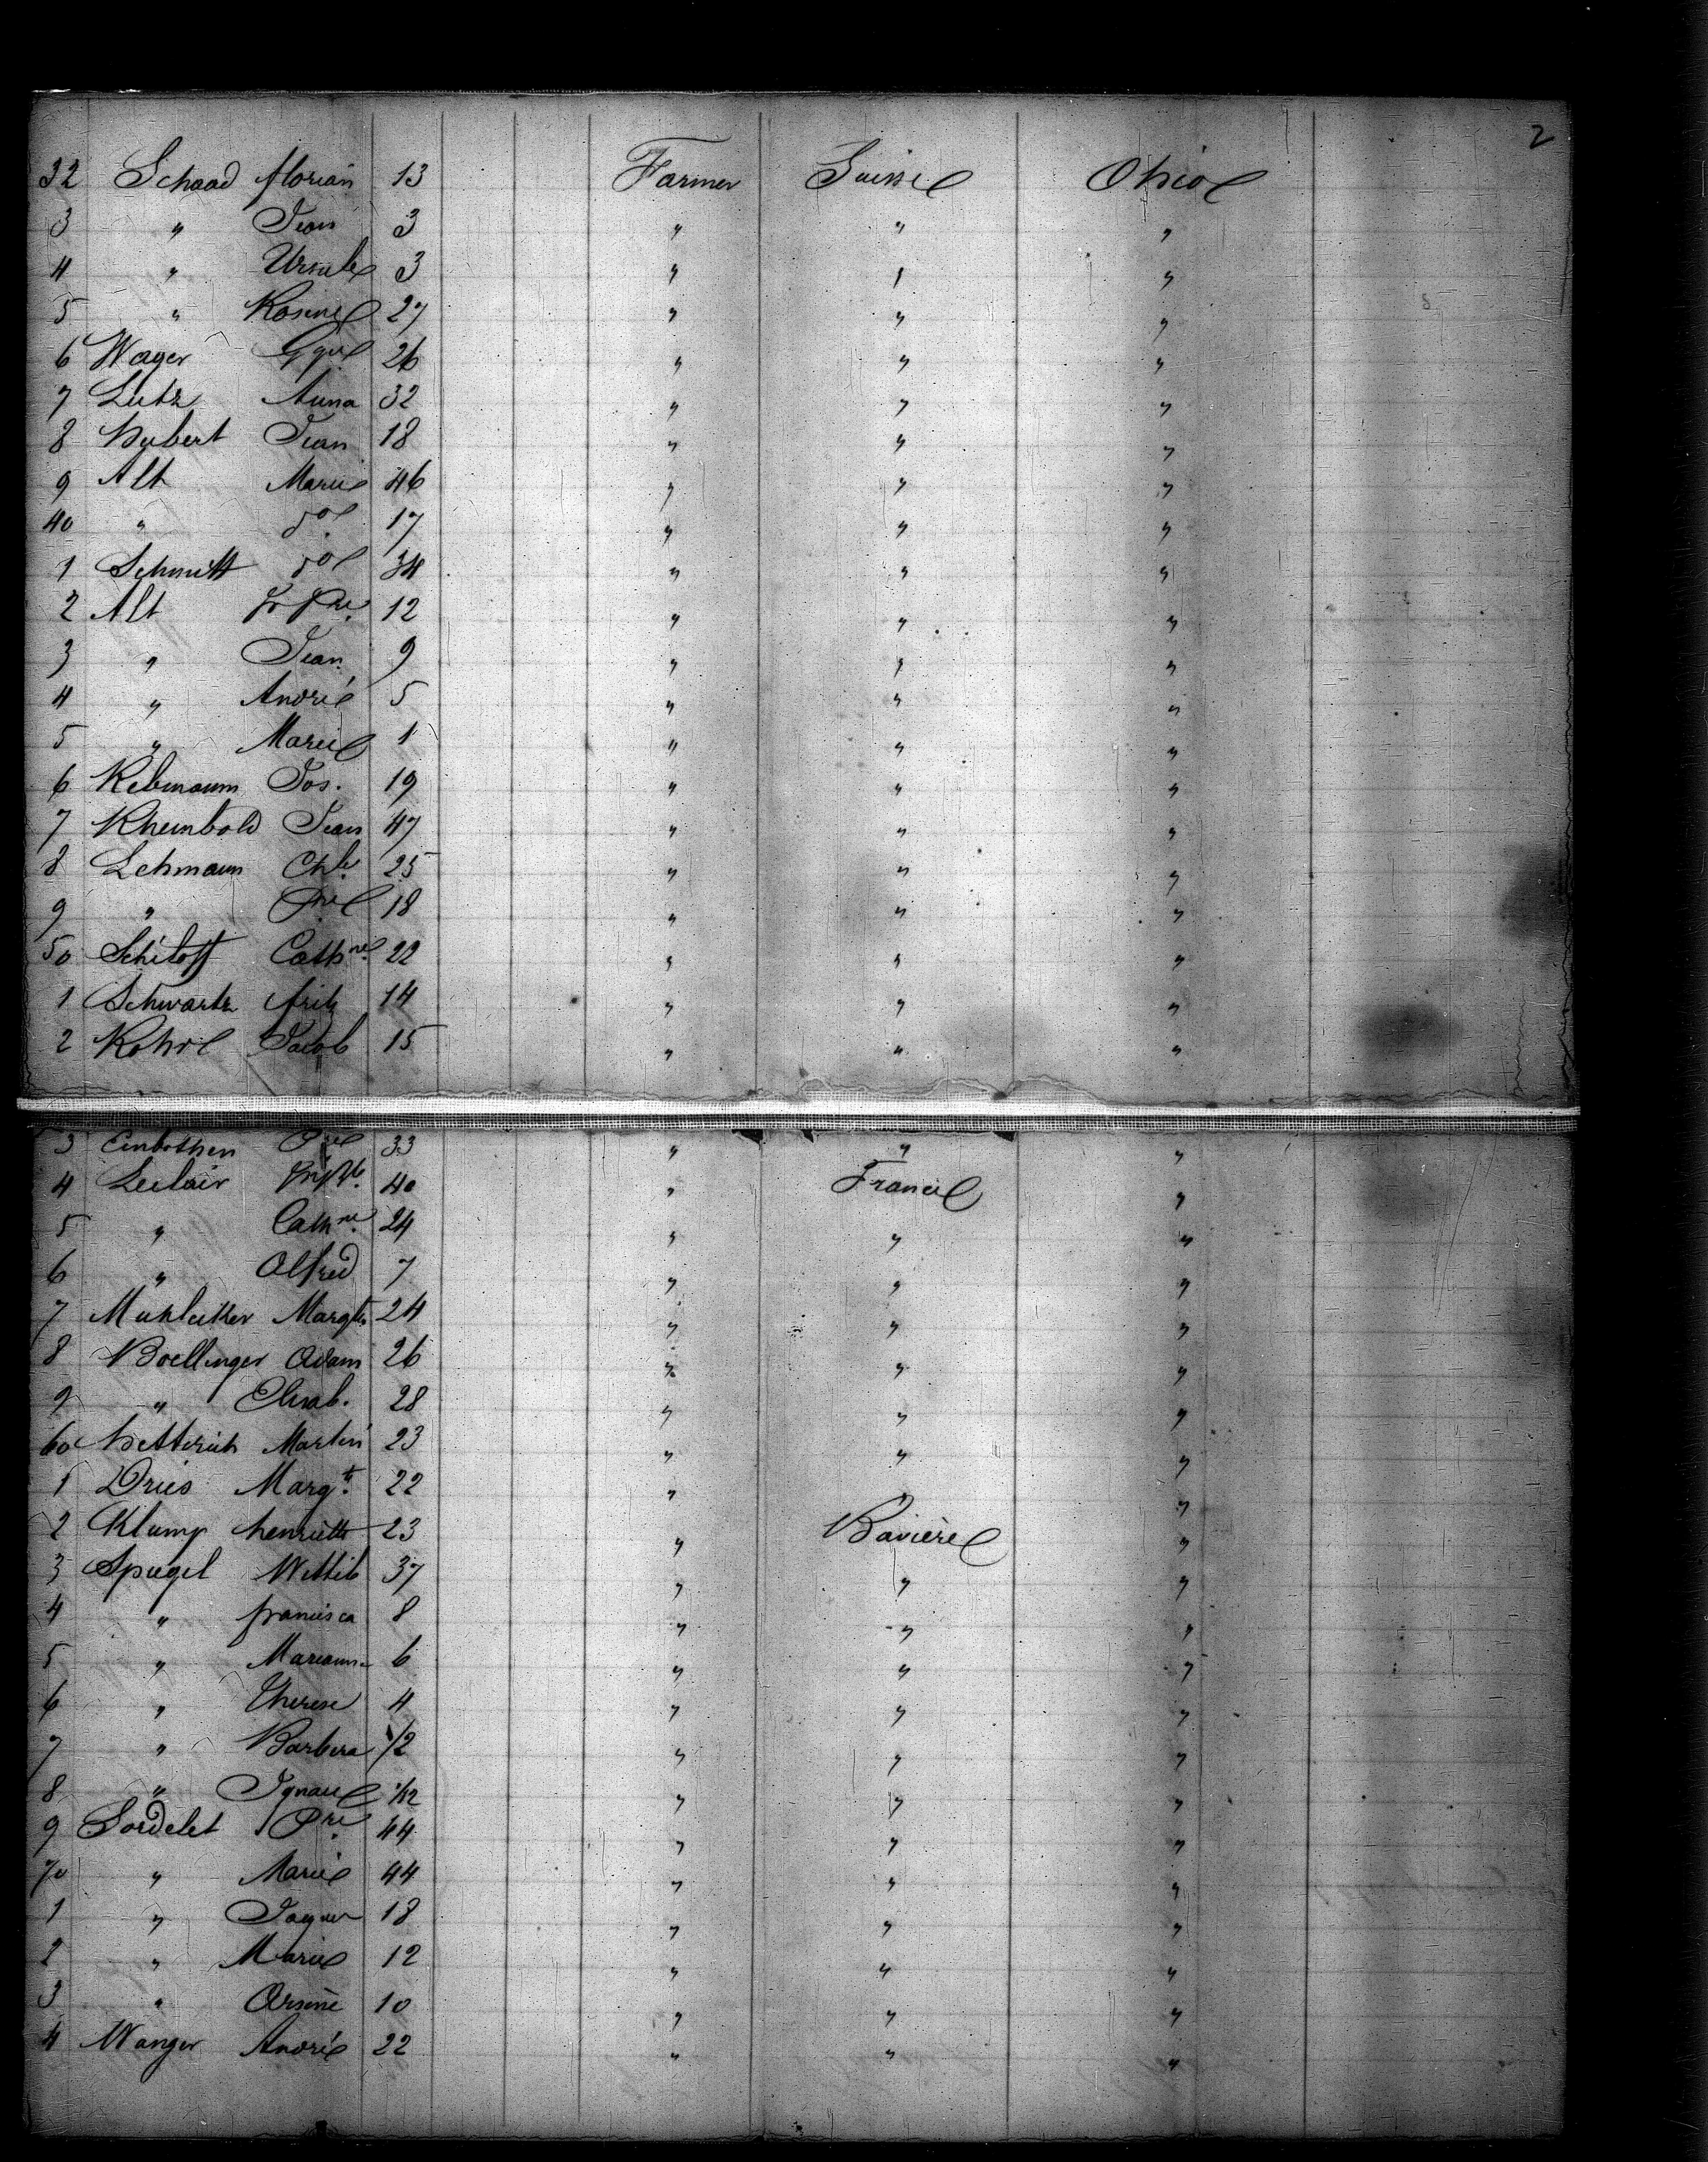 2
32 Schaad florian 13 Farmer Suisse Ohio
3 " Jean 3 " " "
4 " Ursule 3 " " "
5 " Rosine 27 " " "
6 Wager 26 " " "
7 Lutz Anna 32 " " "
8 hubert Jean 18 " " "
9 Alt Marie 46 " " "
40 " do 17 " " "
1 Schmitt do 34 " " "
2 Alt 12 " " "
3 " Jean 9 " " "
4 " André 5 " " "
5 " Marie 1 " " "
6 Rebmann Jos. 19 " " "
7 Rheinbold Jean 47 " " "
8 Lehmann Chle 25 " " "
9 " Pre 18 " " "
50 Schilott Cathne 22 " " "
1 Schwartz fritz 14 " " "
2 Rohre Jacob 15 " " "
3 Einbothen Pre 33 " " "
4 Leclair 40 " France "
5 " Cathne 24 " " "
6 " Alfred 7 " " "
7 Margte 24 " " "
8 Boellinger Adam 26 " " "
9 " Elisab. 28 " " "
60 hetterich Martin 23 " " "
1 Dries Margte 22 " " "
2 Klump henriette 23 " Bavière "
3 Spiegel Wittib 37 " " "
4 " francisca 8 " " "
5 " Marianne 6 " " "
6 " Therese 4 " " "
7 " Barbera 1/2 " " "
8 " Ignace 1/12 " " "
9 Sordelet Pre 44 " " "
70 " Marie 44 " " "
1 " Jaques 18 " " "
2 " Marie 12 " " "
3 " Arsène 10 " " "
4 Wanger André 22 " " "